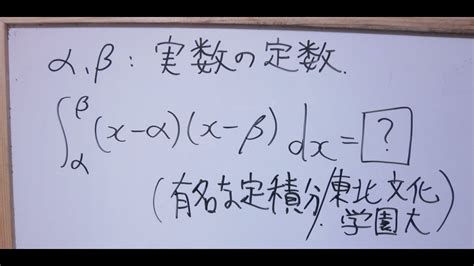 α, β : 実数の定数.
∫_α^β (x-α)(x-β) dx = ?
(有名な定積分/東北文化学園大)